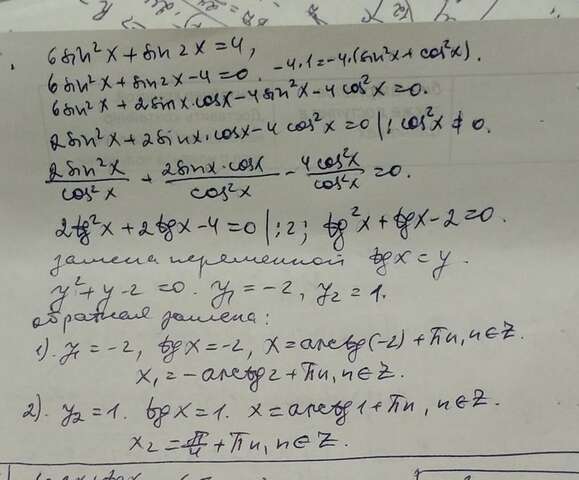 6sin²x + sin2x = 4,
6sin²x + sin2x - 4 = 0. -4·1 = -4·(sin²x + cos²x).
6sin²x + 2sinx·cosx - 4sin²x - 4cos²x = 0.
2sin²x + 2sinx·cosx - 4cos²x = 0 |: cos²x ≠ 0.
2sin²x/cos²x + 2sinx·cosx/cos²x - 4cos²x/cos²x = 0.
2tg²x + 2tgx - 4 = 0 |:2; tg²x + tgx - 2 = 0.
замена переменной tgx = y.
y² + y - 2 = 0. y₁ = -2, y₂ = 1.
обратная замена:
1). y₁ = -2, tgx = -2, x = arctg(-2) + πn, n∈Z.
x₁ = -arctg2 + πn, n∈Z.
2). y₂ = 1. tgx = 1. x = arctg1 + πn, n∈Z.
x₂ = π/4 + πn, n∈Z.